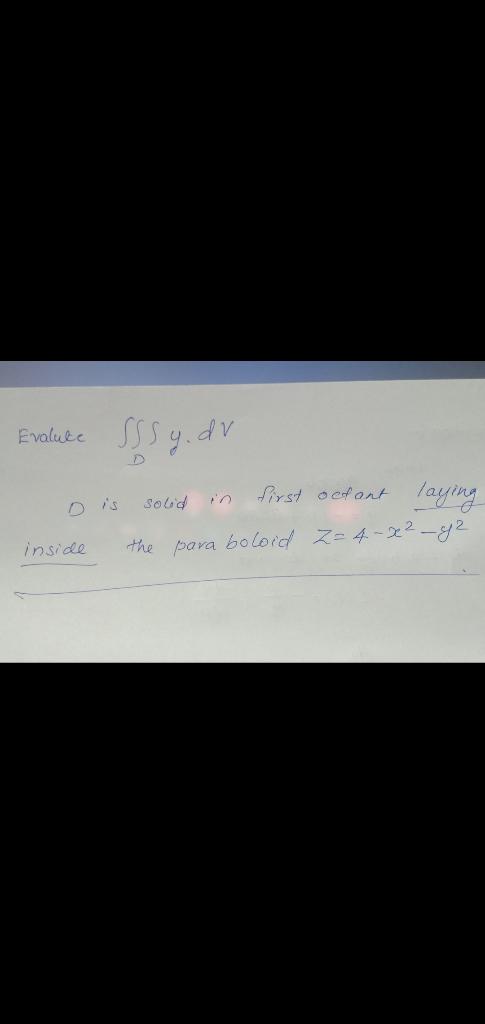 Evalute ∫∫∫ y. dV
D
D is solid in first octant laying
inside the paraboloid Z= 4-x²-y²